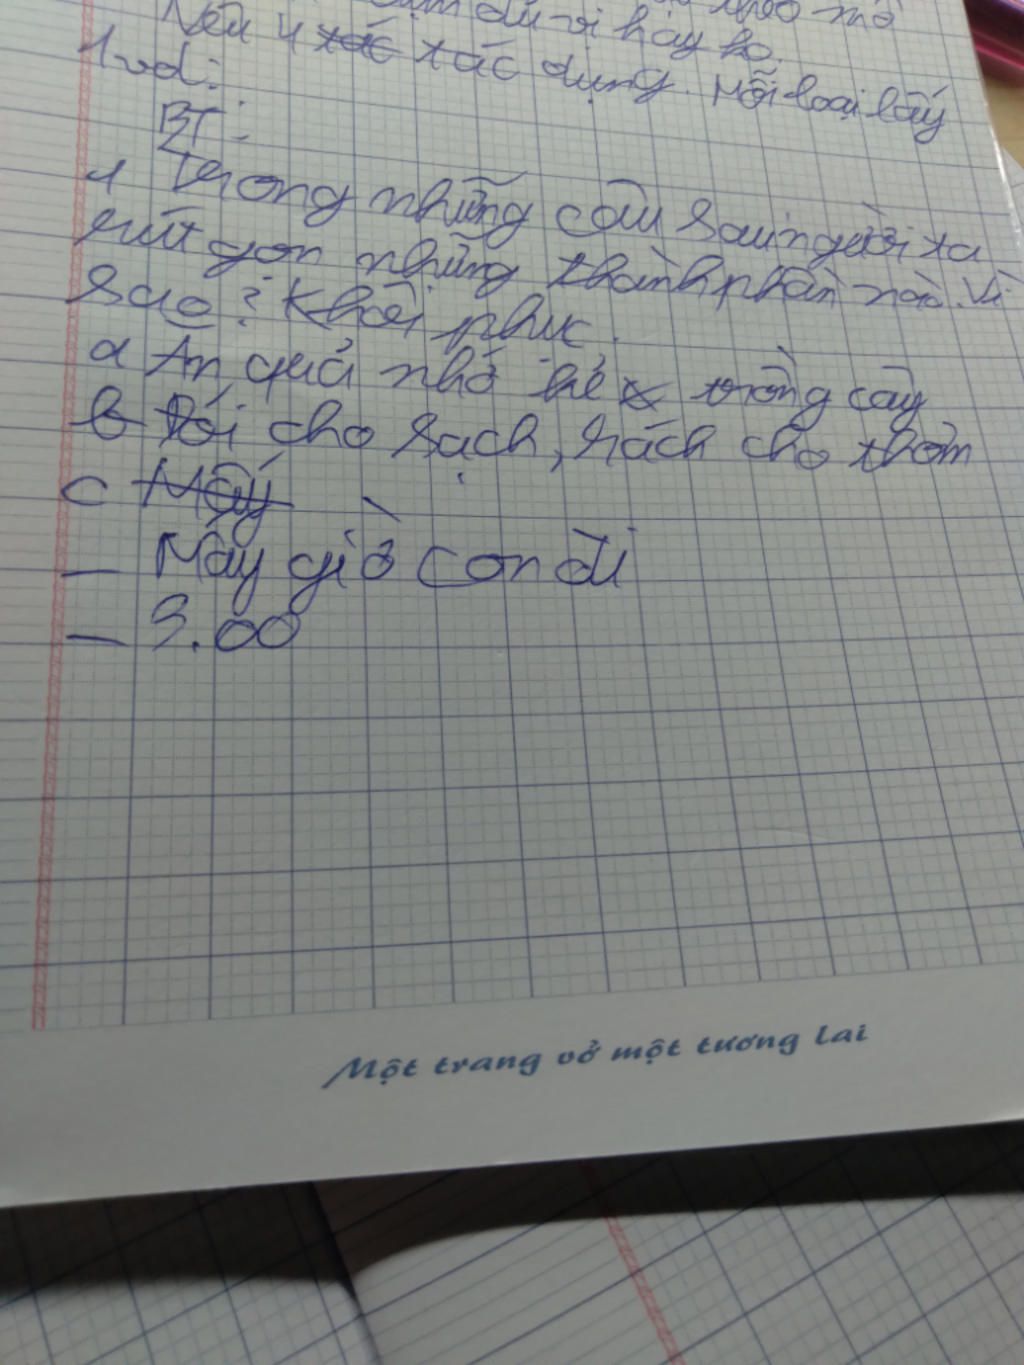 Nêu 4 tác tác dụng. Mỗi loại lấy
1 vd:
BT:
1 Trong những câu sau người ta
rút gọn những thành phần nào. Vì
sao? Khôi phục.
a Ăn quả nhớ kẻ trồng cây
b Đói cho sạch, rách cho thơm
c Mấy
- Mấy giờ con đi
- 3.00
Một trang vở một tương lai